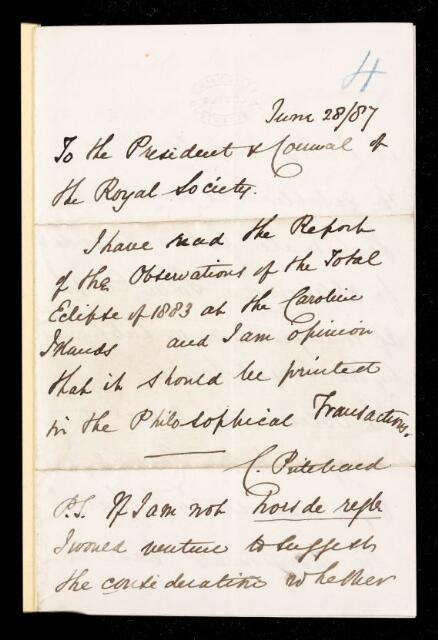 4
June 28/87
To the President & Council of
the Royal Society.
I have read the Report
of the Observations of the Total
Eclipse of 1883 at the Caroline
Islands and I am opinion
that it should be printed
in the Philosophical Transactions.
C. Pritchard
P.S. If I am not hors de regle
I would venture to suggest
the consideration whether